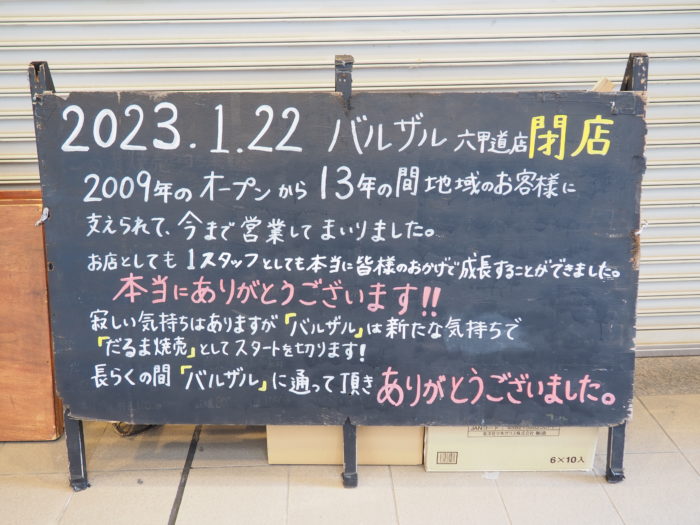 2023.1.22 バルザル 六甲道店 閉店
2009年のオープンから13年の間地域のお客様に
支えられて、今まで営業してまいりました。
お店としても1スタッフとしても本当に皆様のおかげで成長することができました。
本当にありがとうございます!!
寂しい気持ちはありますが「バルザル」は新たな気持ちで
「だるま焼売」としてスタートを切ります!
長らくの間「バルザル」に通って頂きありがとうございました。
6×10入